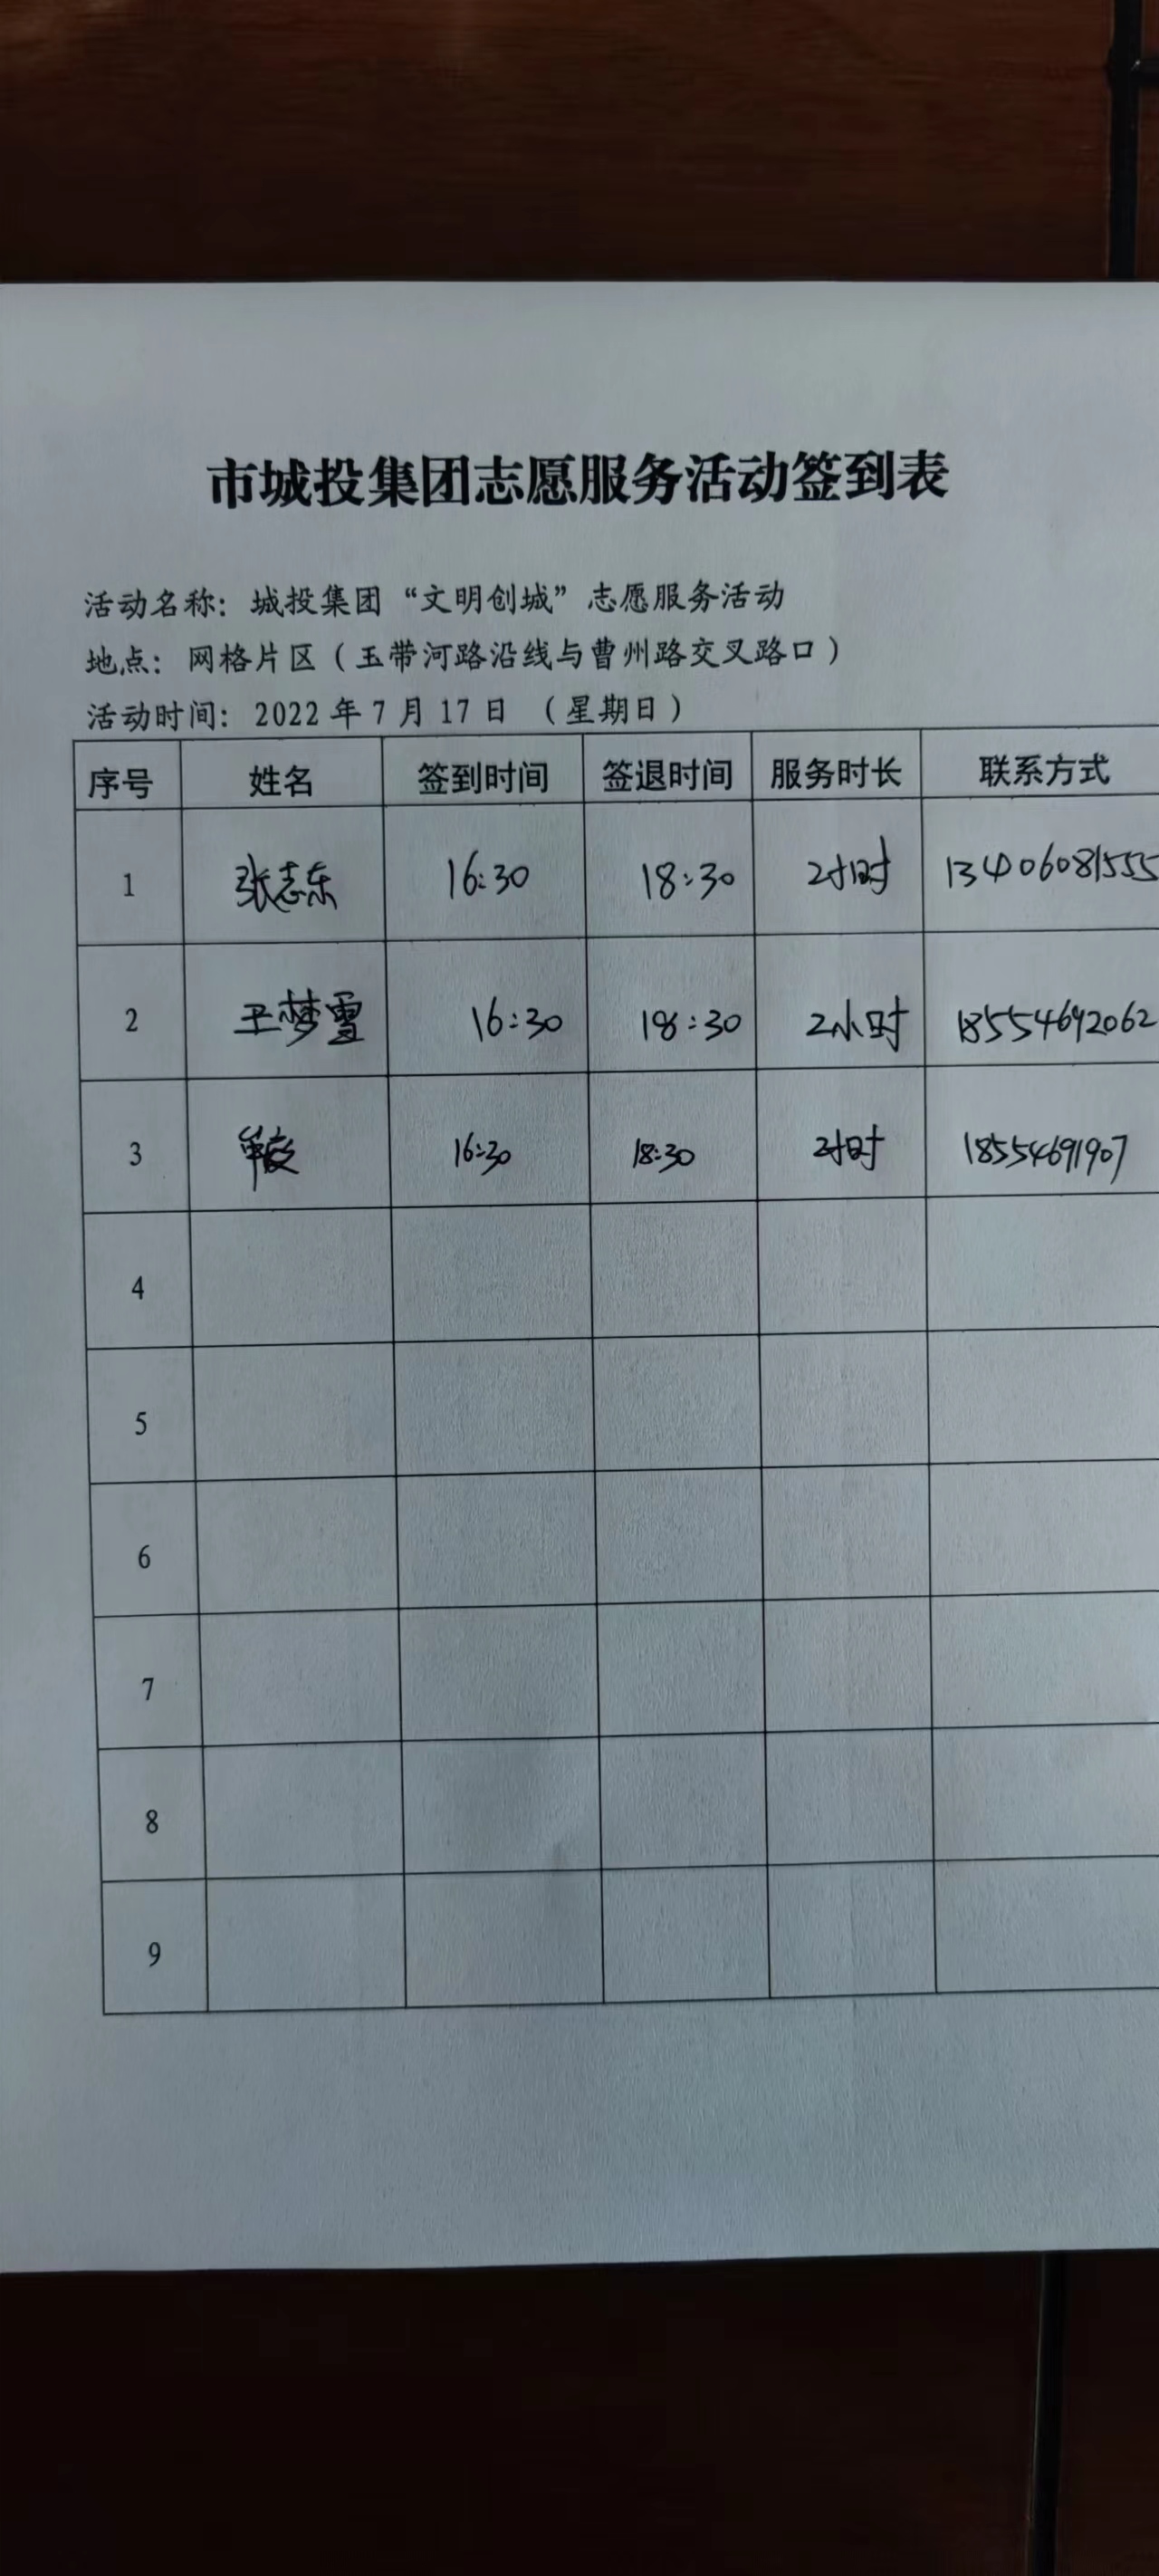 市城投集团志愿服务活动签到表
活动名称：城投集团“文明创城”志愿服务活动
地点：网格片区（玉带河路沿线与曹州路交叉路口）
活动时间：2022年7月17日 （星期日）
序号 姓名 签到时间 签退时间 服务时长 联系方式
1 张志东 16:30 18:30 2小时 13406081555
2 王梦雪 16:30 18:30 2小时 18554692062
3 16:30 18:30 2小时 18554691907
4
5
6
7
8
9